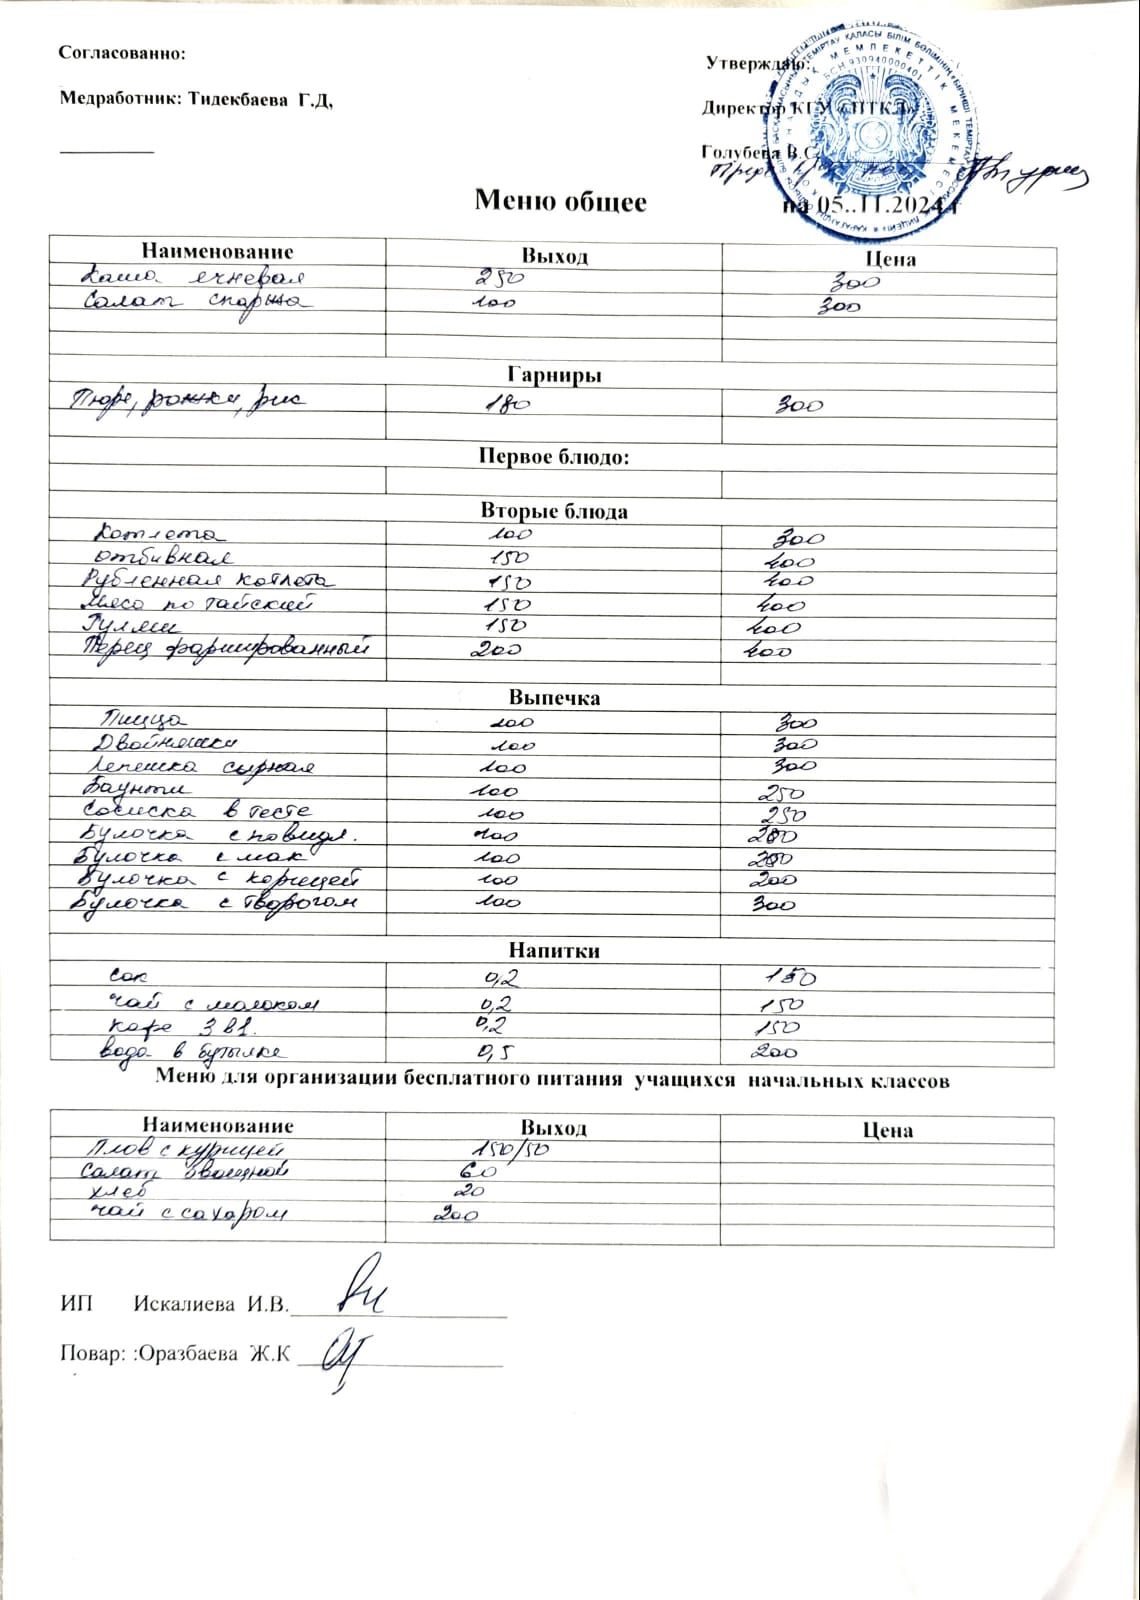 Согласованно:
Утверждаю:
Медработник: Тидекбаева Г.Д,
Директор КГУ «ПТКЛ»
Голубева В.С
Меню общее на 05..11.2024 г
Наименование Выход Цена
Каша ячневая 250 300
Салат спаржа 100 300
Гарниры
Пюре, рожки, рис 180 300
Первое блюдо:
Вторые блюда
Котлета 100 300
отбивная 150 400
Рубленная котлета 150 400
Мясо по тайский 150 400
Гуляш 150 400
Перец фаршированный 200 400
Выпечка
Пицца 100 300
Двойняшки 100 300
Лепешка сырная 100 300
Баунти 100 250
Сосиска в тесте 100 250
Булочка с повидл. 100 200
Булочка с мак 100 200
Булочка с корицей 100 200
Булочка с творогом 100 300
Напитки
Сок 0,2 150
чай с молоком 0,2 150
кофе 3 в 1. 0,2 150
вода в бутылке 0,5 200
Меню для организации бесплатного питания учащихся начальных классов
Наименование Выход Цена
Плов с курицей 150/50
Салат овощной 60
хлеб 20
чай с сахаром 200
ИП Искалиева И.В.
Повар: :Оразбаева Ж.К